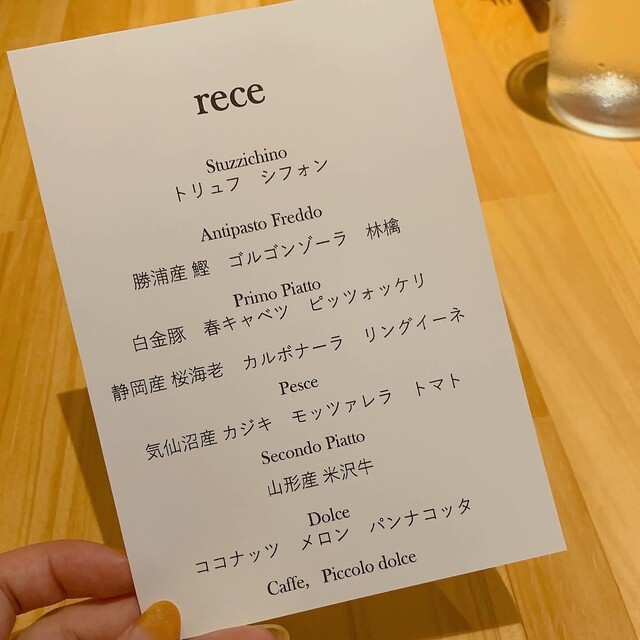 rece
Stuzzichino
トリュフ　シフォン
Antipasto Freddo
勝浦産 鰹　ゴルゴンゾーラ　林檎
Primo Piatto
白金豚　春キャベツ　ピッツォッケリ
静岡産 桜海老　カルボナーラ　リングイーネ
Pesce
気仙沼産 カジキ　モッツァレラ　トマト
Secondo Piatto
山形産 米沢牛
Dolce
ココナッツ　メロン　パンナコッタ
Caffe,　Piccolo dolce